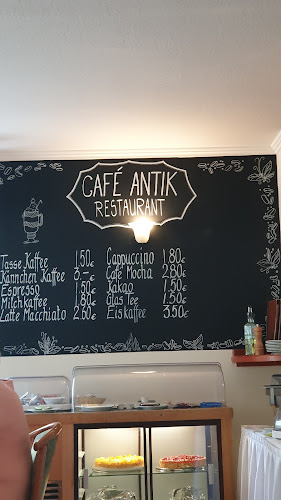 CAFÉ ANTIK
RESTAURANT
Tasse Kaffee 1,50€
Kännchen Kaffee 3,-€
Espresso 1,50€
Milchkaffee 1,80€
Latte Macchiato 2,50€
Cappuccino 1,80€
Café Mocha 2,80€
Kakao 1,50€
Glas Tee 1,50€
Eiskaffee 3,50€